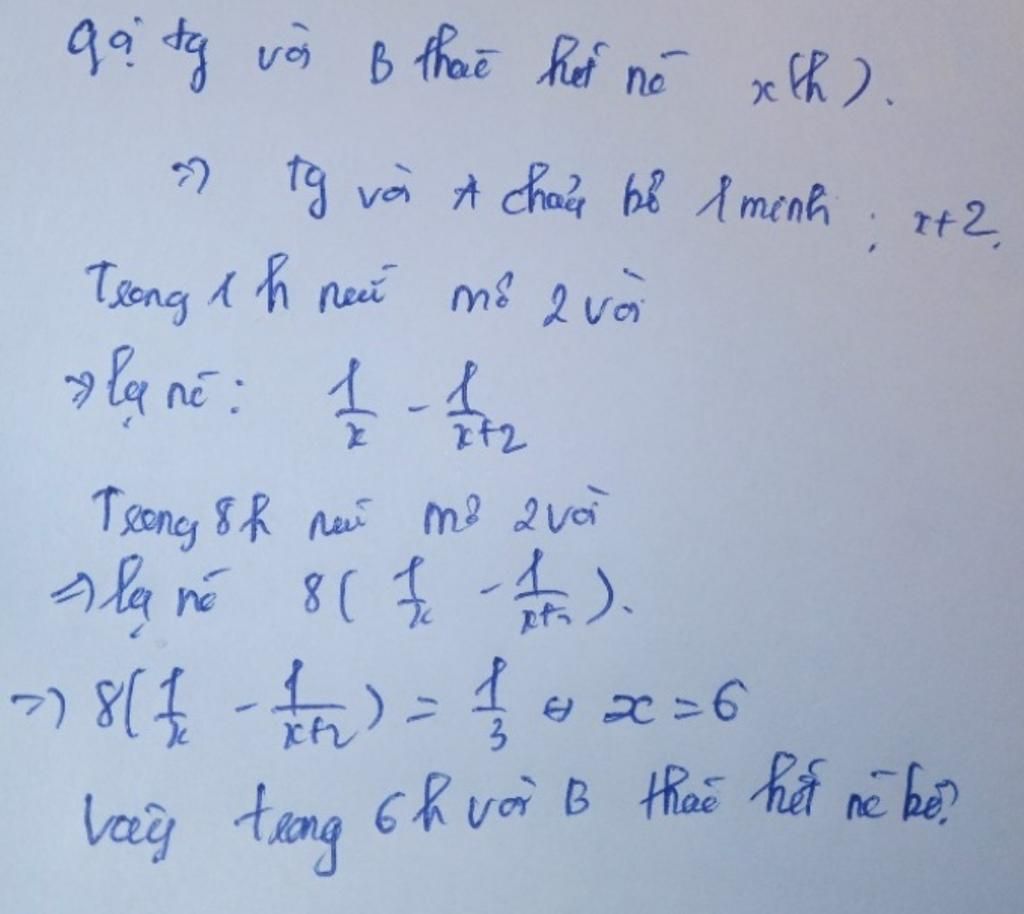 Gọi tg vòi B tháo hết nc x(h).
=> tg vòi A chảy bể 1 mình : x+2.
Trong 1 h nếu mở 2 vòi
=> lg nc: 1/x - 1/x+2
Trong 8h nếu mở 2 vòi
=> lg nc 8(1/x - 1/x+2).
=> 8(1/x - 1/x+2) = 1/3 ⇔ x = 6
Vậy trong 6h vòi B tháo hết nc bể.